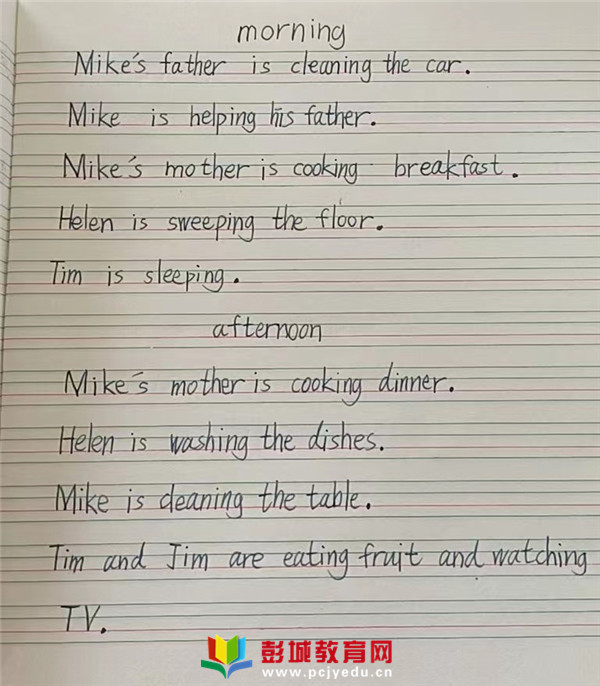 morning
Mike's father is cleaning the car.
Mike is helping his father.
Mike's mother is cooking breakfast.
Helen is sweeping the floor.
Tim is sleeping.
afternoon
Mike's mother is cooking dinner.
Helen is washing the dishes.
Mike is cleaning the table.
Tim and Jim are eating fruit and watching
TV.
彭城教育网
www.pcjyedu.cn